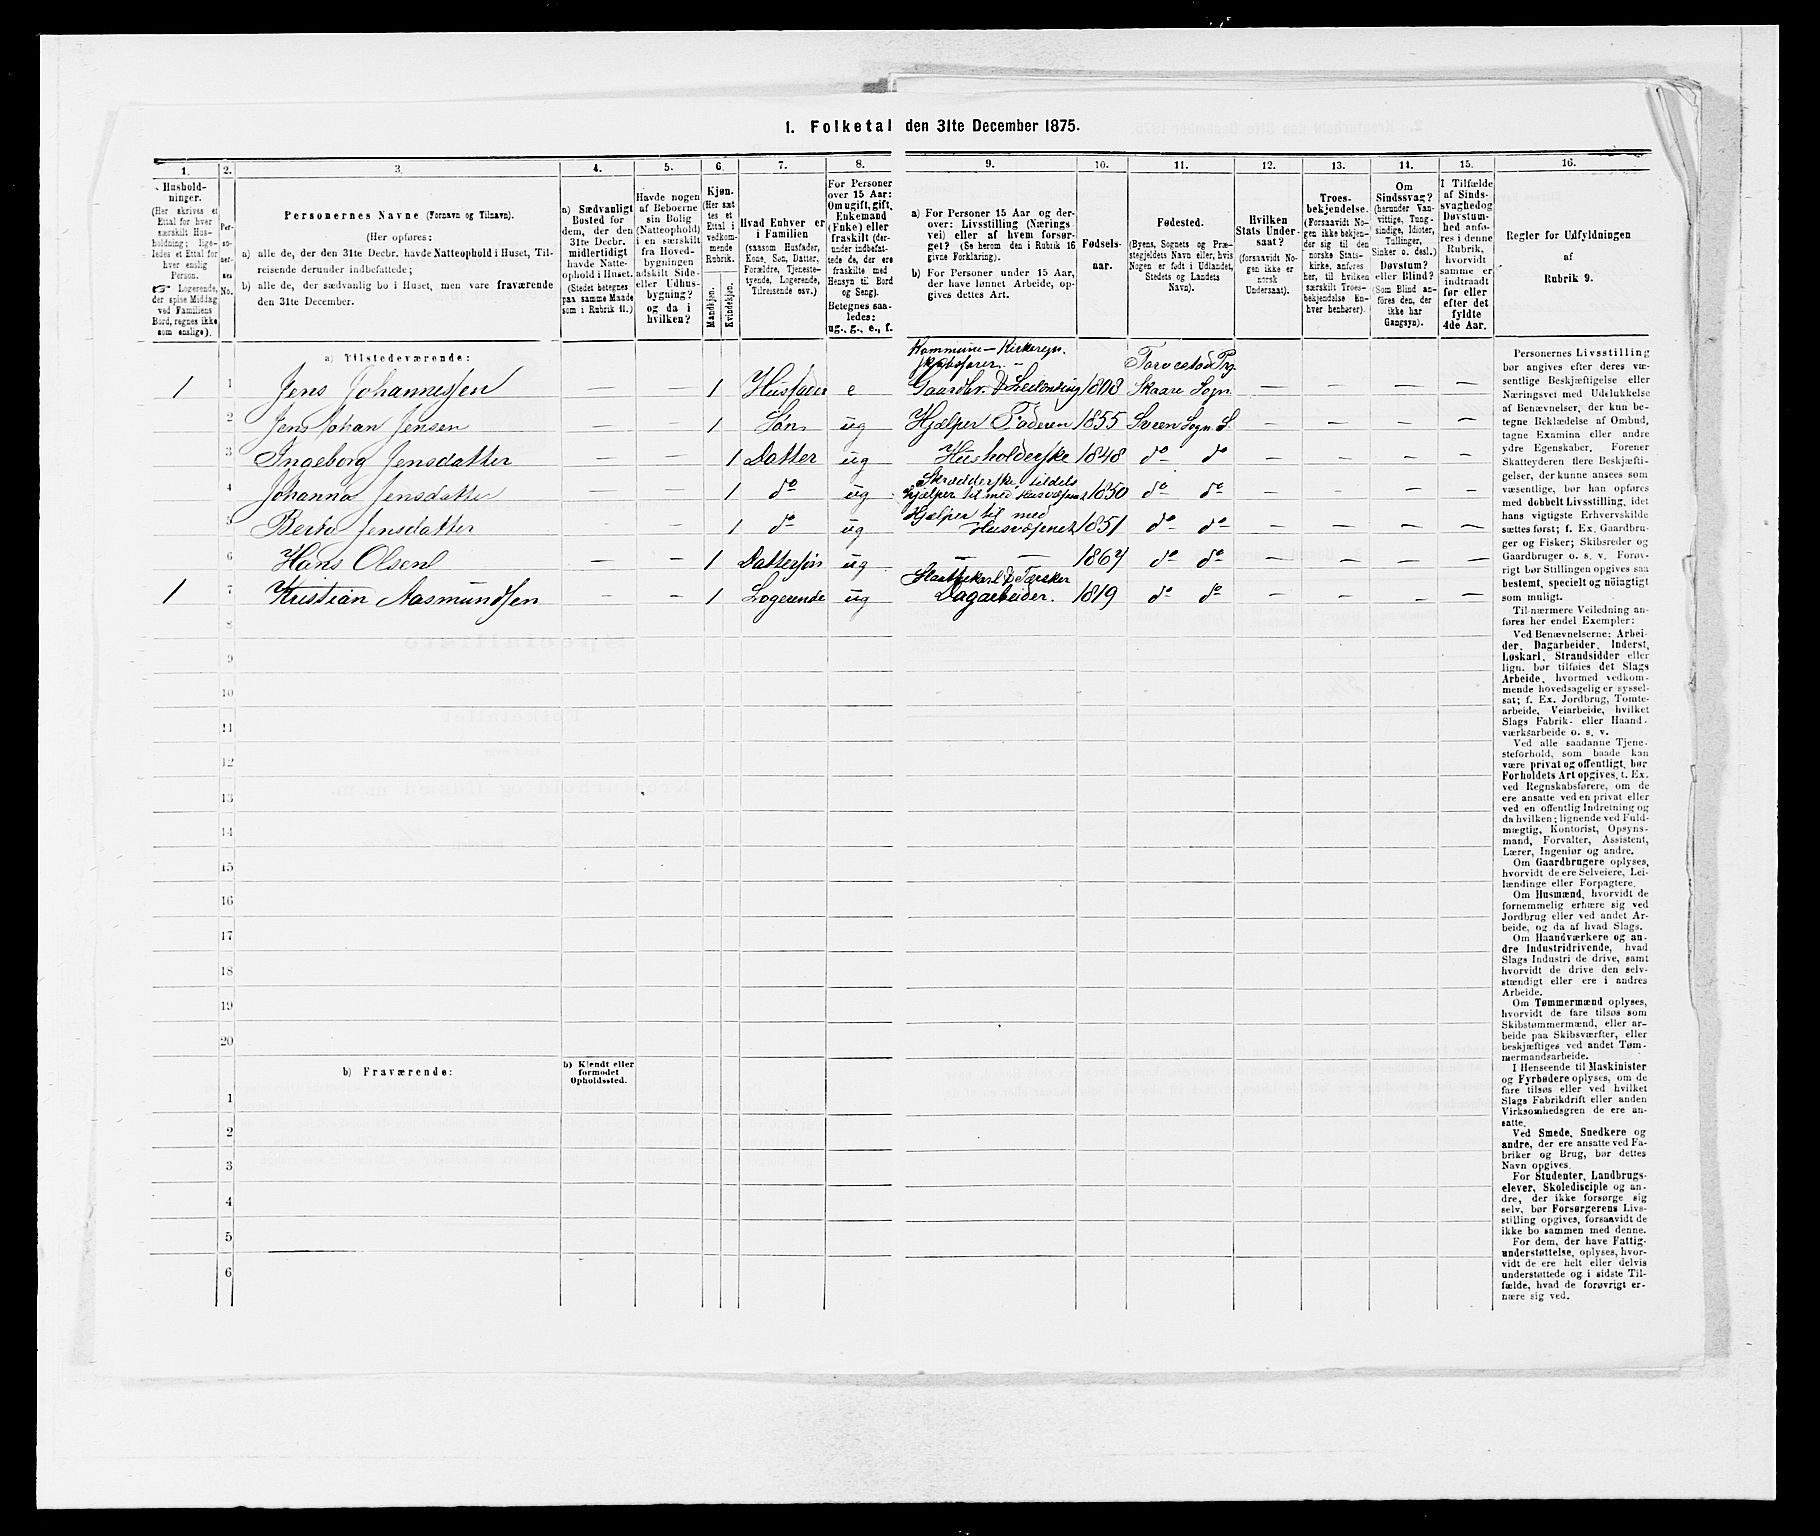 1. Folketal den 31te December 1875.
1.
2.
3.
4.
5.
6.
7.
8.
9.
10.
11.
12.
13.
14.
15.
16.
Hushold-
ninger.
(Her skrives et
Ettal for hver
særskilt Hus-
holdning; lige-
ledes et Ettal for
hver enslig
Person.
Logerende,
der spise Middag
ved Familiens
Bord, regnes ikke
som enslige).
Per-
so-
ner-
nes
No.
Personernes Navne (Fornavn og Tilnavn).
(Her opføres:
a) alle de, der den 31te Decbr. havde Natteophold i Huset, Til-
reisende derunder indbefattede;
b) alle de, der sædvanlig bo i Huset, men vare fraværende
den 31te December.
a) Sædvanligt
Bosted for
dem, der den
31te Decbr.
midlertidigt
havde Natte-
ophold i Huset.
(Stedet betegnes
paa samme Maade
som i Rubrik 11.)
Havde nogen
af Beboerne
sin Bolig
(Natteophold)
i en særskilt
fra Hoved-
bygningen
adskilt Side-
eller Udhus-
bygning?
og da i
hvilken?
Kjøn.
(Her sæt
tes et
Ettal i
vedkom-
mende
Rubrik.
Mandkjøn.
Kvindekjøn.
Hvad Enhver er
i Familien
(saasom Husfader,
Kone, Søn, Datter,
Forældre, Tjeneste-
tyende, Logerende,
Tilreisende osv.)
For Personer
over 15 Aar:
Om ugift, gift,
Enkemand
(Enke) eller
fraskilt (der-
under indbefat-
tede de, der ere
fraskilte med
Hensyn til Bord
og Seng).
Betegnes saa-
ledes:
ug., g., e., f.
a) For Personer 15 Aar og der-
over: Livsstilling (Nærings-
vei) eller af hvem forsør-
get? (Se herom den i Rubrik 16
givne Forklaring).
b) For Personer under 15 Aar,
der have lønnet Arbeide, op-
gives dettes Art.
Fødsels-
aar.
Fødested.
(Byens, Sognets og Præ-
stegjeldets Navn eller, hvis
Nogen er født i Udlandet,
Stedets og Landets
Navn).
Hvilken
Stats Under-
saat?
(forsaavidt No-
gen ikke er
norsk
Undersaat).
Troes-
bekjendelse.
(Forsaavidt No-
gen ikke bekjen-
der sig til den
norske Stats-
kirke, anføres
her, til hvilken
særskilt Troes-
bekjendelse En-
hver henhører).
Om
Sindssvag?
(herunder Van-
vittige, Tung-
sindige, Idioter,
Tullinger,
Sinker o. desl.)
Døvstum?
eller Blind?
(Som Blind an-
føres den, der
ikke har
Gangsyn).
I Tilfælde
af Sinds-
svaghed og
Døvstum-
hed anfø-
res i denne
Rubrik,
hvorvidt
samme er
indtraadt
før eller
efter det
fyldte
4de Aar.
Regler for Udfyldningen
af
Rubrik 9.
a) Tilstedeværende:
Kommune- Kirkesgn.
Torvestad Pg.
1 1 Jens Johannessen — — 1 Husfader e Gaardbr. & Leilending 1808 Skaare Sogn
2 Jens Johan Jensen — — 1 Søn ug Hjælper Faderen 1855 Sveen Sogn S. — — — —
3 Ingeborg Jensdatter — — 1 Datter ug Husholderske 1848 do do — — — —
Skrædderske tildels
4 Johanna Jensdatter — — 1 do ug hjælper til med Husvæsenet 1850 do do — — — —
Hjælper til med
5 Berta Jensdatter — — 1 do ug Husvæsenet 1851 do do — — — —
6 Hans Olsen — — 1 Dattersøn ug — — 1867 do do — — — —
7 1 Kristian Aasmundsen — — 1 Logerende ug Dagarbeider. 1819 do do — — — —
8
9
10
11
12
13
14
15
16
17
18
19
20
b) Fraværende:
b) Kjendt eller
formodet
Opholdssted.
1
2
3
4
5
6
Personernes Livsstilling
bør angives efter deres væ-
sentlige Beskjæftigelse eller
Næringsvei med Udelukkelse
af Benævnelser, der kun be-
tegne Beklædelse af Ombud,
tagne Examina eller andre
ydre Egenskaber. Forener
Skatteyderen flere Beskjæfti-
gelser, der kunne ansees som
væsentlige, bør han opføres
med dobbelt Livsstilling, idet
hans vigtigste Erhvervskilde
sættes først; f. Ex. Gaardbru-
ger og Fisker; Skibsreder og
Gaardbruger o. s. v. Forøv-
rigt bør Stillingen opgives saa
bestemt, specielt og nöiagtigt
som muligt.
Til nærmere Veiledning an-
føres her endel Exempler:
Ved Benævnelserne: Arbei-
der, Dagarbeider, Inderst,
Løskarl, Strandsidder eller
lign. bør tilføies det Slags
Arbeide, hvormed vedkom-
mende hovedsagelig er syssel-
sat; f. Ex. Jordbrug, Tomte-
arbeide, Veiarbeide, hvilket
Slags Fabrik- eller Haand-
værksarbeide o. s. v.
Ved alle saadanne Tjene-
steforhold, som baade kan
være privat og offentligt, bør
Forholdets Art opgives, t. Ex.
ved Regnskabsførere, om de
ere ansatte ved en privat eller
ved en offentlig Indretning og
da hvilken; lignende ved Fuld-
mægtig, Kontorist, Opsyns-
mand, Forvalter, Assistent,
Lærer, Ingeniør og andre.
Om Gaardbrugere oplyses,
hvorvidt de ere Selveiere, Lei-
lændinge eller Forpagtere.
Om Husmænd, hvorvidt de
fornemmelig erhære sig ved
Jordbrug eller ved andet Ar-
beide, og da af hvad Slags.
Om Haandværkere og an-
dre Industridrivende, hvad
Slags Industri de drive, samt
hvorvidt de drive den selv-
stændigt eller ere i andres
Arbeide.
Om Tømmermænd oplyses,
hvorvidt de fare tilsøs som
Skibstømmermænd, eller ar-
beide paa Skibsværfter, eller
beskjæftiges ved andet Tøm-
mermandsarbeide.
I Henseende til Maskinister
og Fyrbødere oplyses, om de
fare tilsøs eller ved hvilket
Slags Fabrikdrift eller anden
Virksomhedsgren de ere an-
satte.
Ved Smede, Snedkere og
andre, der ere ansatte ved Fa-
briker og Brug, bør dettes
Navn opgives.
For Studenter, Landbrugs-
elever, Skoledisciple og an-
dre, der ikke forsørge sig
selv, bør Forsørgerens Livs-
stilling opgives, forsaavidt de
ikke bo sammen med denne.
For dem, der have Fattig-
understøttelse, oplyses, hvor-
vidt de ere helt eller delvis
understøttede og i sidste Til-
fælde, hvad de forøvrigt er-
nære sig ved.